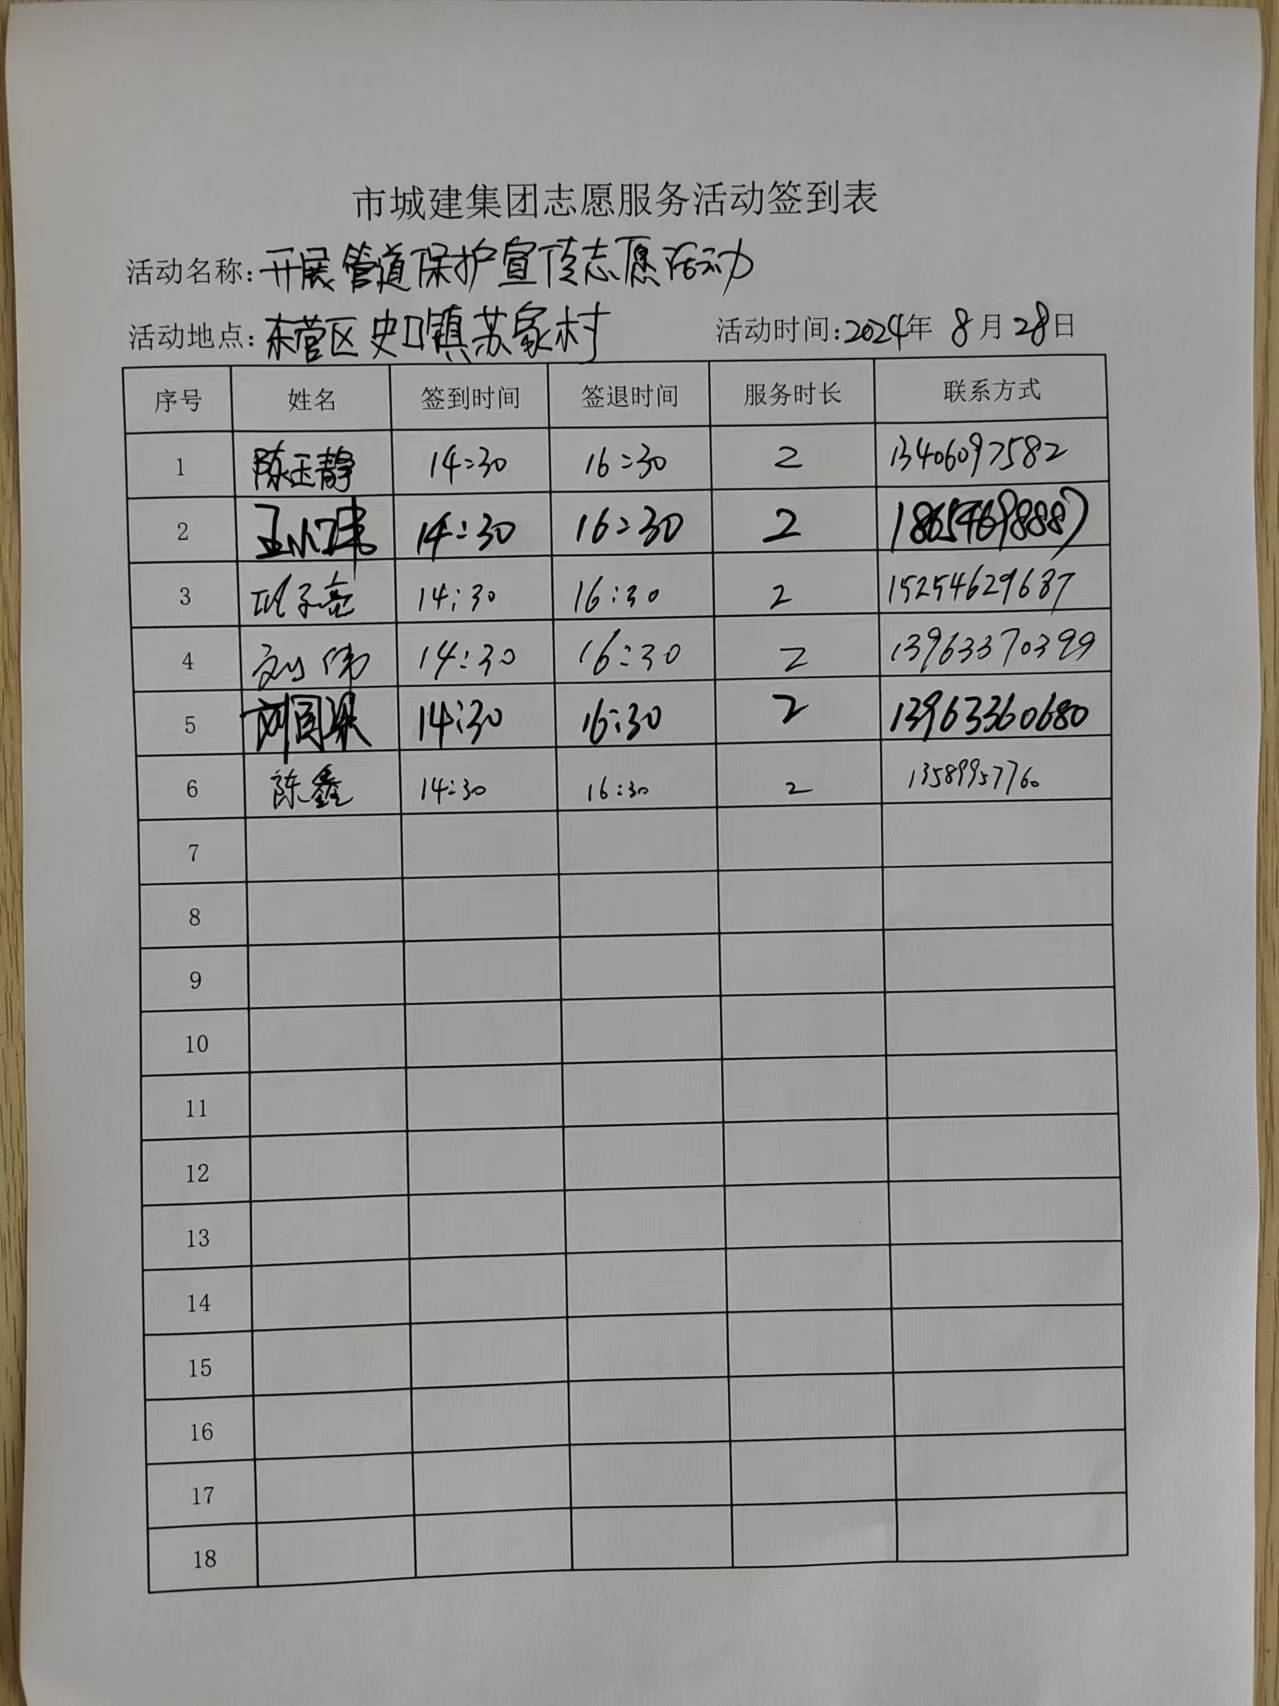 市城建集团志愿服务活动签到表
活动名称:开展管道保护宣传志愿活动
活动地点:东营区史口镇苏家村 活动时间:2024年 8月28日
序号 姓名 签到时间 签退时间 服务时长 联系方式
1 陈玉静 14:30 16:30 2 13406097582
2 14:30 16:30 2 18654698887
3 14:30 16:30 2 15254629687
4 刘伟 14:30 16:30 2 13963370399
5 刘国梁 14:30 16:30 2 13963360680
6 陈鑫 14:30 16:30 2 13589957760
7
8
9
10
11
12
13
14
15
16
17
18